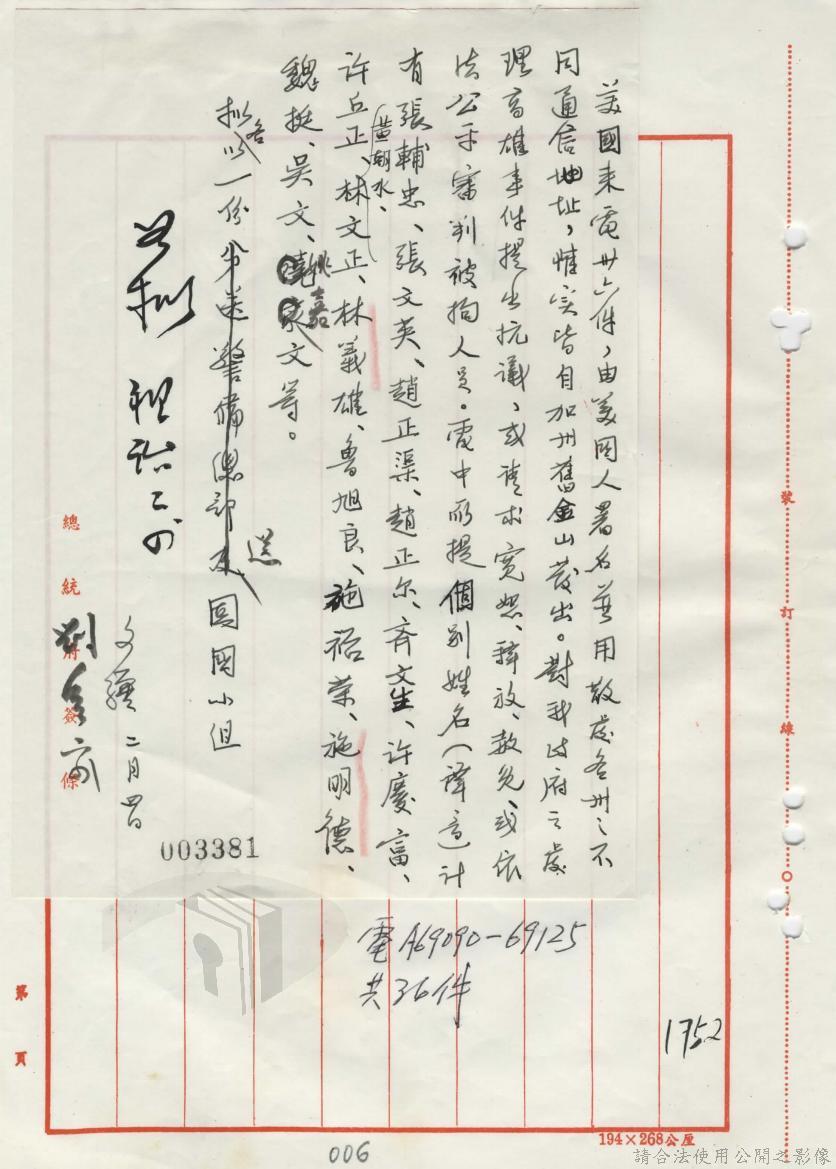 美國來電卅六件，由美國人署名並用散處各州之不
同通信地址，惟实皆自加州舊金山發出。對我政府之處
理高雄事件提出抗議、或請求寬恕、釋放、赦免、或依
法公平審判被拘人員。電中所提個別姓名（譯音）計
有張輔忠、張文英、趙正渠、趙正尔、齐文生、许慶富、
黃朝水、
许丘正、林文正、林義雄、魯旭良、施裕荣、施明德、
魏挺、吴文、姚嘉文等。
拟以各一份分送警備總部及送圓圓小组
如拟
文 二月四日
總統府簽條
003381
電A69090-69125
共36件
1752
裝
訂
線
第 頁
194×268公厘
006
請合法使用公開之影像